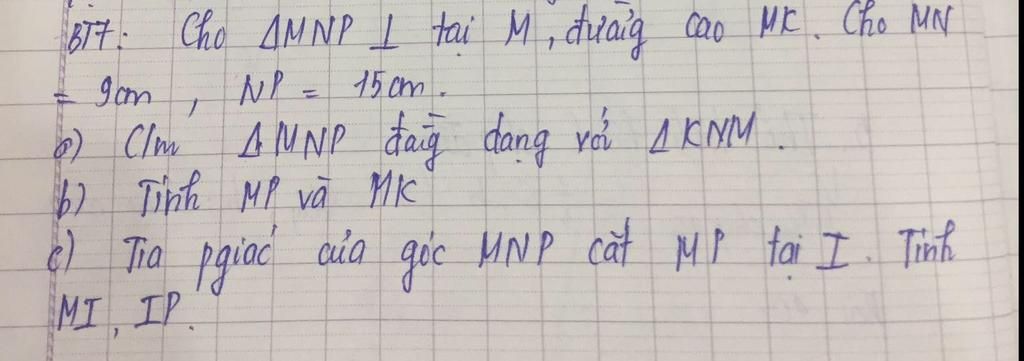 BT7: Cho ΔMNP ⊥ tại M, đường cao MK. Cho MN
= 9cm, NP = 15cm.
a) C/m ΔMNP đồng dạng với ΔKNM.
b) Tính MP và MK
c) Tia pgiác của góc MNP cắt MP tại I. Tính
MI, IP.